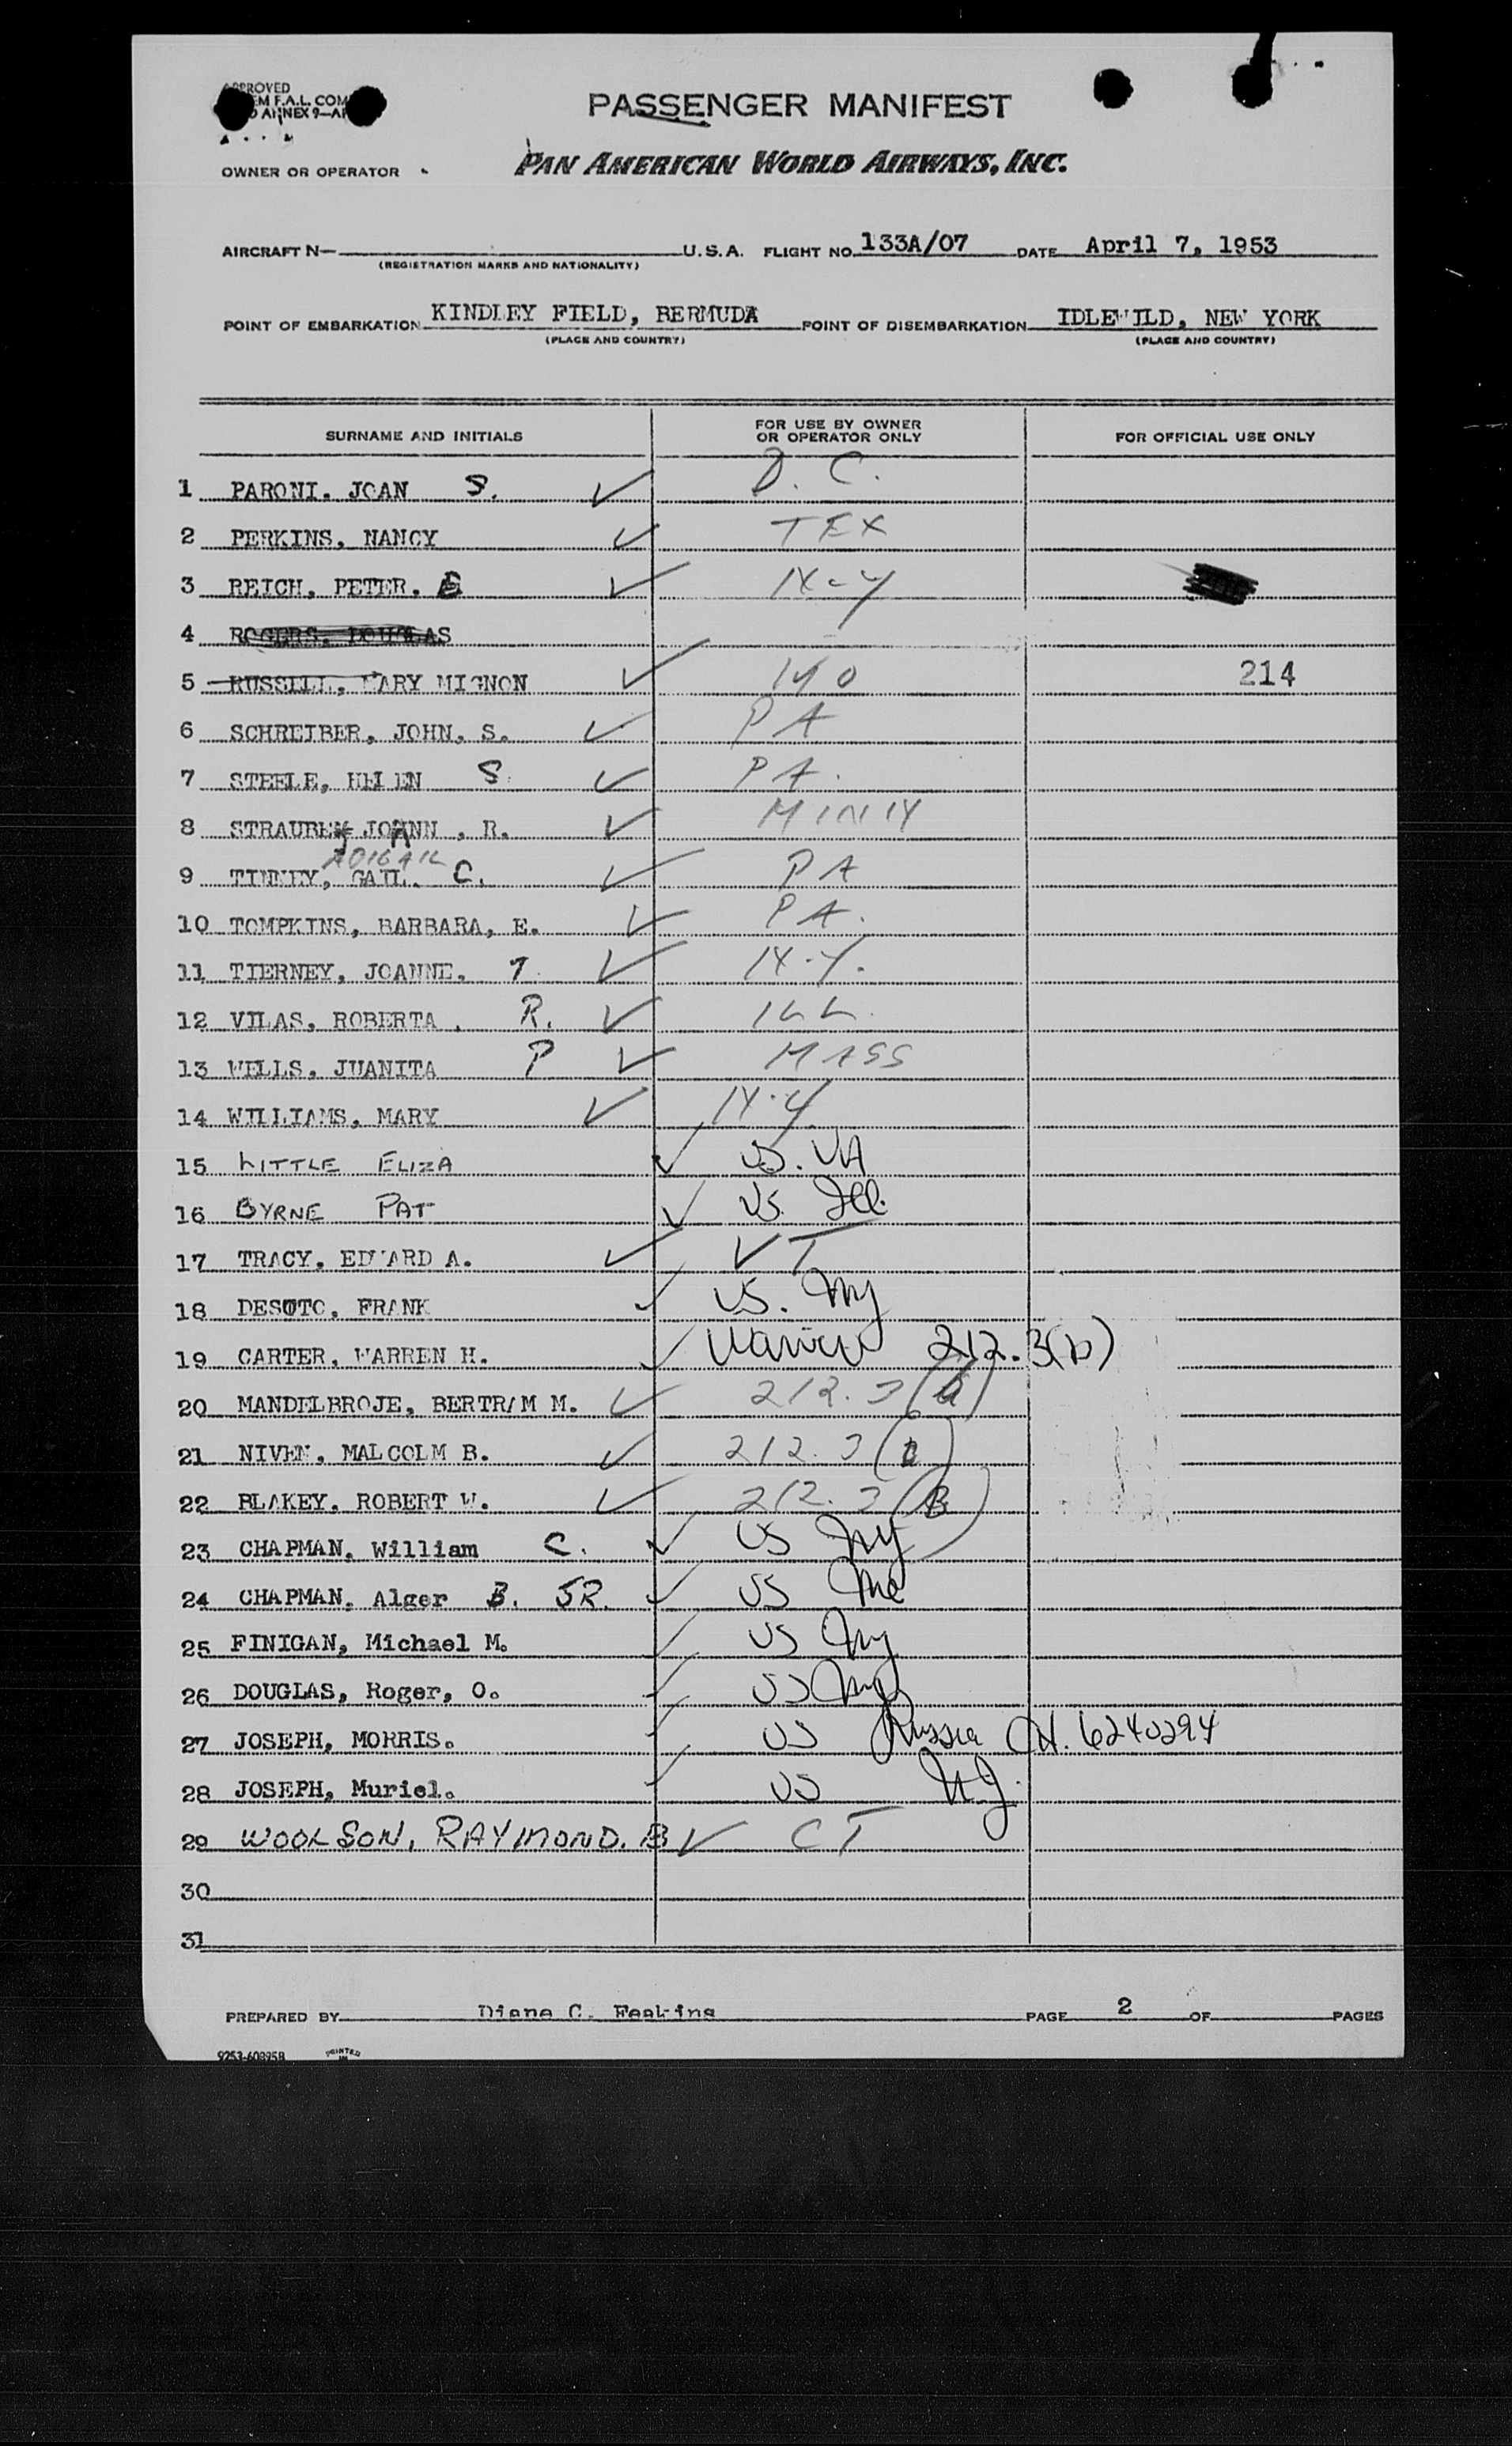 APPROVED
EM F.A.L. COM
ANNEX 9—AP
PASSENGER MANIFEST
OWNER OR OPERATOR PAN AMERICAN WORLD AIRWAYS, INC.
AIRCRAFT N— U.S.A. FLIGHT NO. 133A/07 DATE April 7, 1953
(REGISTRATION MARKS AND NATIONALITY)
POINT OF EMBARKATION KINDLEY FIELD, BERMUDA POINT OF DISEMBARKATION IDLEWILD, NEW YORK
(PLACE AND COUNTRY) (PLACE AND COUNTRY)
SURNAME AND INITIALS FOR USE BY OWNER OR OPERATOR ONLY FOR OFFICIAL USE ONLY
1 PARONI. JOAN S. ✓ D. C.
2 PERKINS, NANCY ✓ TEX
3 REICH, PETER. ✓ N-Y
4 ROGERS, DOUGLAS
5 RUSSELL, MARY MIGNON ✓ MO 214
6 SCHREIBER, JOHN, S. ✓ PA
7 STEELE, HELEN S. ✓ PA.
8 JOANN , R. ✓ MINN
9 TINNEY, GAIL. C. ✓ PA
10 TOMPKINS, BARBARA, E. ✓ PA.
11 TIERNEY, JOANNE. T ✓ N.Y.
12 VILAS, ROBERTA . R. ✓ ILL.
13 WELLS, JUANITA P ✓ MASS
14 WILLIAMS, MARY ✓ N.Y.
15 LITTLE ELIZA ✓ US. VA
16 BYRNE PAT ✓ US. Ill.
17 TRACY, EDWARD A. ✓ VT
18 DESOTO, FRANK ✓ US. Ny
19 CARTER, WARREN H. ✓ 212.3(b)
20 MANDELBROJE, BERTRAM M. ✓ 212.3(b)
21 NIVEN, MALCOLM B. ✓ 212.3(b)
22 BLAKEY, ROBERT W. ✓ 212.3(B)
23 CHAPMAN, William C. ✓ US Ny
24 CHAPMAN, Alger B. JR. ✓ US Me
25 FINIGAN, Michael M. ✓ US Ny
26 DOUGLAS, Roger, O. ✓ US
27 JOSEPH, MORRIS. ✓ US Russia 6240294
28 JOSEPH, Muriel. ✓ US N.J.
29 WOOLSON, RAYMOND. B ✓ CT
30
31
PREPARED BY Diane C. Feakins PAGE 2 OF PAGES
9253-60895B PRINTED